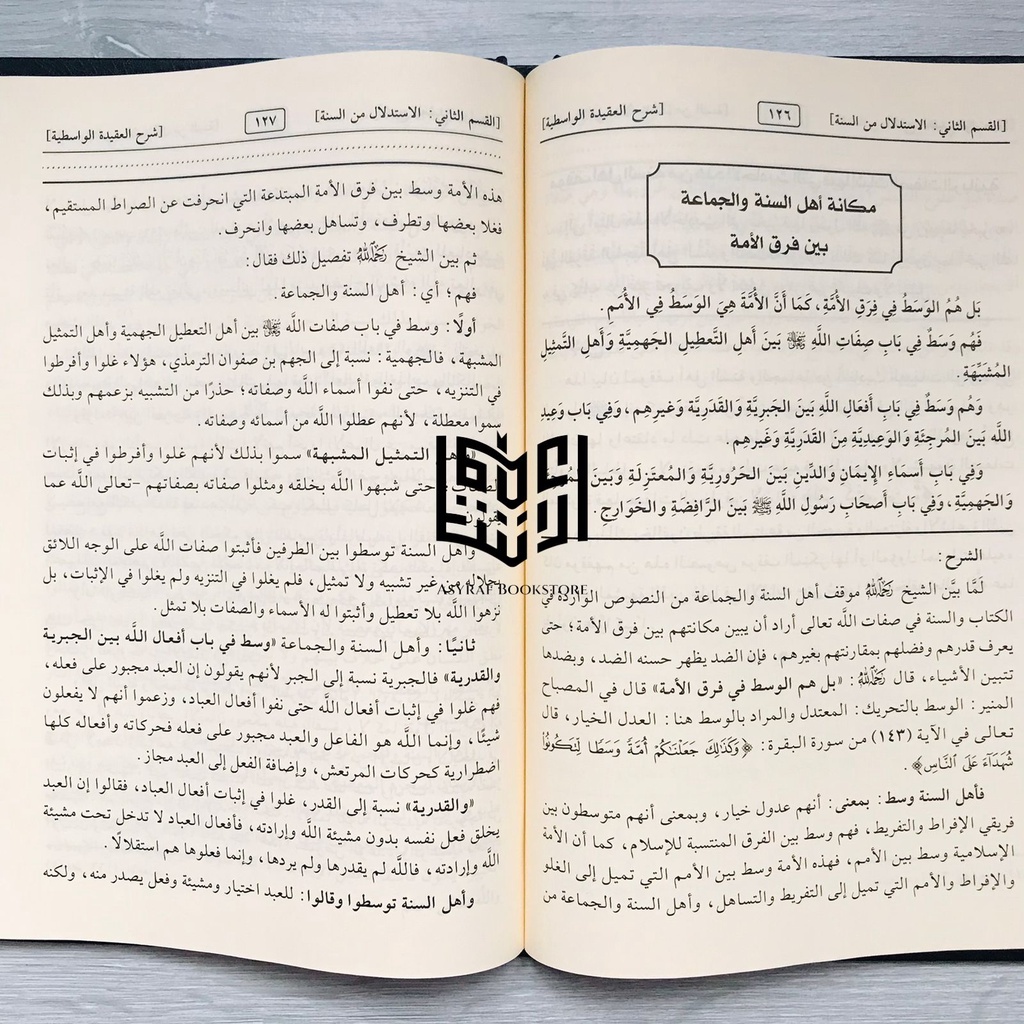 [القسم الثاني: الاستدلال من السنة] ١٢٦ [شرح العقيدة الواسطية]
مكانة أهل السنة والجماعة
بين فرق الأمة
بَل هُمُ الوَسَطُ فِي فِرَقِ الأُمَّةِ، كَمَا أَنَّ الأُمَّةَ هِيَ الوَسَطُ فِي الأُمَمِ.
فَهُم وَسَطٌ فِي بَابِ صِفَاتِ اللَّهِ ﷻ بَينَ أَهلِ التَّعطِيلِ الجَهمِيَّةِ وَأَهلِ التَّمثِيلِ
المُشَبِّهَةِ.
وَهُم وَسَطٌ فِي بَابِ أَفعَالِ اللَّهِ بَينَ الجَبرِيَّةِ وَالقَدَرِيَّةِ وَغَيرِهِم، وَفِي بَاب وَعِيدِ
اللَّه بَينَ المُرجِئَةِ وَالوَعِيدِيَّةِ مِنَ القَدَرِيَّةِ وَغَيرِهِم.
وَفِي بَابِ أَسمَاءِ الإِيمَانِ وَالدِّينِ بَينَ الحَرُورِيَّةِ وَالمُعتَزِلَةِ وَبَينَ
وَالجَهمِيَّةِ، وَفِي بَاب أَصحَابِ رَسُولِ اللَّهِ ﷺ بَينَ الرَّافِضَةِ وَالخَوَارِجِ.
الشرح:
لَمَّا بيَّن الشيخ رَحِمَهُ اللَّهُ موقف أهل السنة والجماعة من النصوص الواردة في
الكتاب والسنة في صفات اللَّه تعالى أراد أن يبين مكانتهم بين فرق الأمة؛ حتى
يعرف قدرهم وفضلهم بمقارنتهم بغيرهم، فإن الضد يظهر حسنه الضد، وبضدها
تتبين الأشياء، قال رَحِمَهُ اللَّهُ: «بل هم الوسط في فرق الأمة» قال في المصباح
المنير: الوسط بالتحريك: المعتدل والمراد بالوسط هنا: العدل الخيار، قال
تعالى في الآية (١٤٣) من سورة البقرة: ﴿وَكَذَٰلِكَ جَعَلْنَٰكُمْ أُمَّةً وَسَطًا لِّتَكُونُوا۟
شُهَدَآءَ عَلَى ٱلنَّاسِ﴾.
فأهل السنة وسط: بمعنى: أنهم عدول خيار، وبمعنى أنهم متوسطون بين
فريقي الإفراط والتفريط، فهم وسط بين الفرق المنتسبة للإسلام، كما أن الأمة
الإسلامية وسط بين الأمم، فهذه الأمة وسط بين الأمم التي تميل إلى الغلو
والإفراط والأمم التي تميل إلى التفريط والتساهل، وأهل السنة والجماعة من
[القسم الثاني: الاستدلال من السنة] ١٢٧ [شرح العقيدة الواسطية]
هذه الأمة وسط بين فرق الأمة المبتدعة التي انحرفت عن الصراط المستقيم،
فغلا بعضها وتطرف، وتساهل بعضها وانحرف.
ثم بين الشيخ رَحِمَهُ اللَّهُ تفصيل ذلك فقال:
فهم؛ أي: أهل السنة والجماعة.
أولًا: وسط في باب صفات اللَّه ﷻ بين أهل التعطيل الجهمية وأهل التمثيل
المشبهة، فالجهمية: نسبة إلى الجهم بن صفوان الترمذي، هؤلاء غلوا وأفرطوا
في التنزيه، حتى نفوا أسماء اللَّه وصفاته؛ حذرًا من التشبيه بزعمهم وبذلك
سموا معطلة، لأنهم عطلوا اللَّه من أسمائه وصفاته.
التمثيل المشبهة» سموا بذلك لأنهم غلوا وأفرطوا في إثبات
حتى شبهوا اللَّه بخلقه ومثلوا صفاته بصفاتهم -تعالى اللَّه عما
يقولون
وأهل السنة توسطوا بين الطرفين فأثبتوا صفات اللَّه على الوجه اللائق
بجلاله من غير تشبيه ولا تمثيل، فلم يغلوا في التنزيه ولم يغلوا في الإثبات، بل
نزهوا اللَّه بلا تعطيل وأثبتوا له الأسماء والصفات بلا تمثل.
ثانيًا: وأهل السنة والجماعة «وسط في باب أفعال اللَّه بين الجبرية
والقدرية» فالجبرية نسبة إلى الجبر لأنهم يقولون إن العبد مجبور على فعله،
فهم غلوا في إثبات أفعال اللَّه حتى نفوا أفعال العباد، وزعموا أنهم لا يفعلون
شيئًا، وإنما اللَّه هو الفاعل والعبد مجبور على فعله فحركاته وأفعاله كلها
اضطرارية كحركات المرتعش، وإضافة الفعل إلى العبد مجاز.
«والقدرية» نسبة إلى القدر، غلوا في إثبات أفعال العباد، فقالوا إن العبد
يخلق فعل نفسه بدون مشيئة اللَّه وإرادته، فأفعال العباد لا تدخل تحت مشيئة
اللَّه وإرادته، فاللَّه لم يقدرها ولم يردها، وإنما فعلوها هم استقلالًا.
وأهل السنة توسطوا وقالوا: للعبد اختيار ومشيئة وفعل يصدر منه، ولكنه
ASYRAF BOOKSTORE